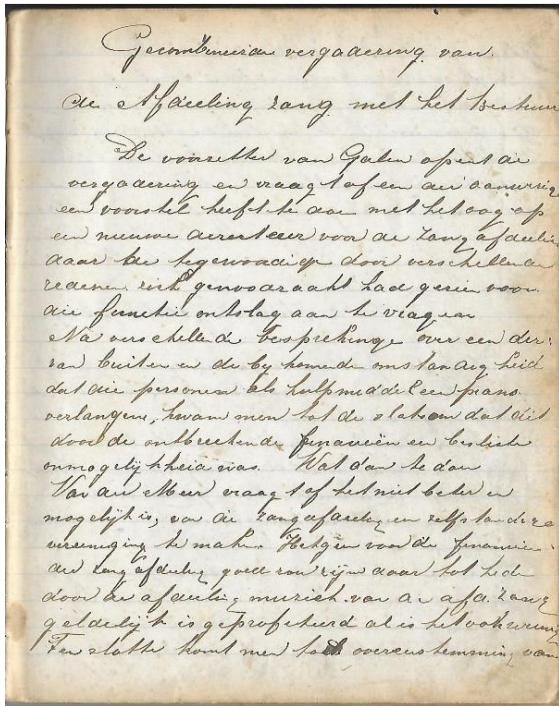 Gecombineerde vergadering van
de Afdeeling zang met het Bestuur
De voorzitter van Galen opent de
vergadering en vraagt of een der aanwezige
een voorstel heeft te doen met het oog op
een nieuwe directeur voor de zangafdeelin
daar de tegenwoordige door verschillende
redenen zich genoodzaakt had gezien voor
die functie ontslag aan te vragen
Na verschillende besprekinge over een der:
van buiten en de bykomende omstandigheid
dat die personen als hulpmiddel een piano
verlangens, kwam men tot de slotsom dat dit
door de ontbreekende financiën en besliste
onmogelijkheid was. Wat dan te doen
Van der Meer vraagt of het niet beter en
mogelijk is, van de zangafdeeling en zelfstandige
vereeniging te maken. Hetgeen voor de financiën
der zangafdeling goed zou zijn daar tot heden
door de afdeeling muziek van de afd. zang
geldelijk is geprofiteerd al is het ook weinig
Ten slotte komt men tot overeenstemming van